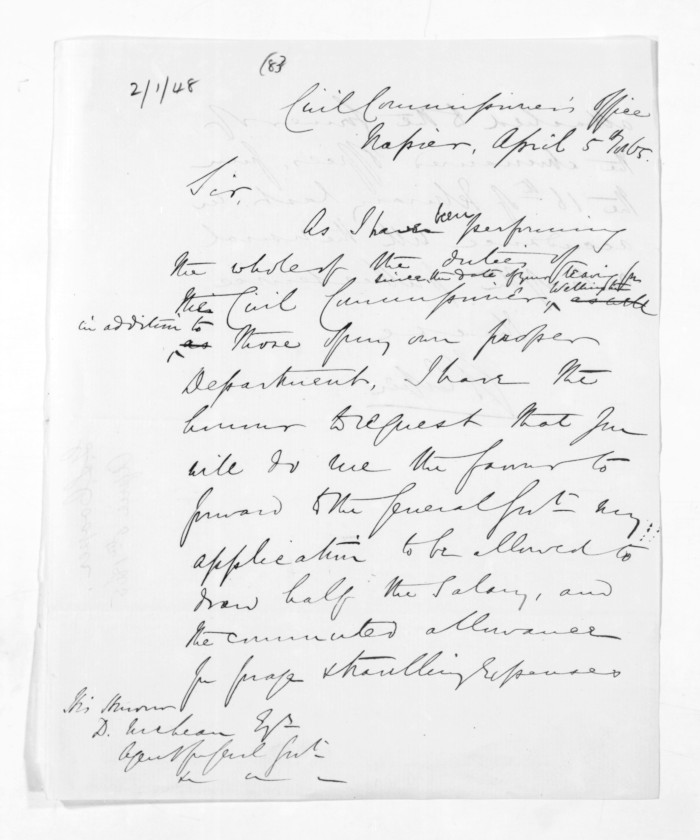 2/1/48
(83
Civil Commissioner's Office
Napier, April 5th 1865.
Sir,
As I have been performing
the whole of the duties of
since the date of your leaving for
the Civil Commissioner Wellington as well
in addition to
as those of my own proper
Department, I have the
honour to request that you
will do me the favour to
forward to the General Govt. my
application to be allowed to
draw half the Salary, and
the commuted allowance
for forage & travelling Expenses
His Honour
D. McLean Esqr
Agent for Genl Govt